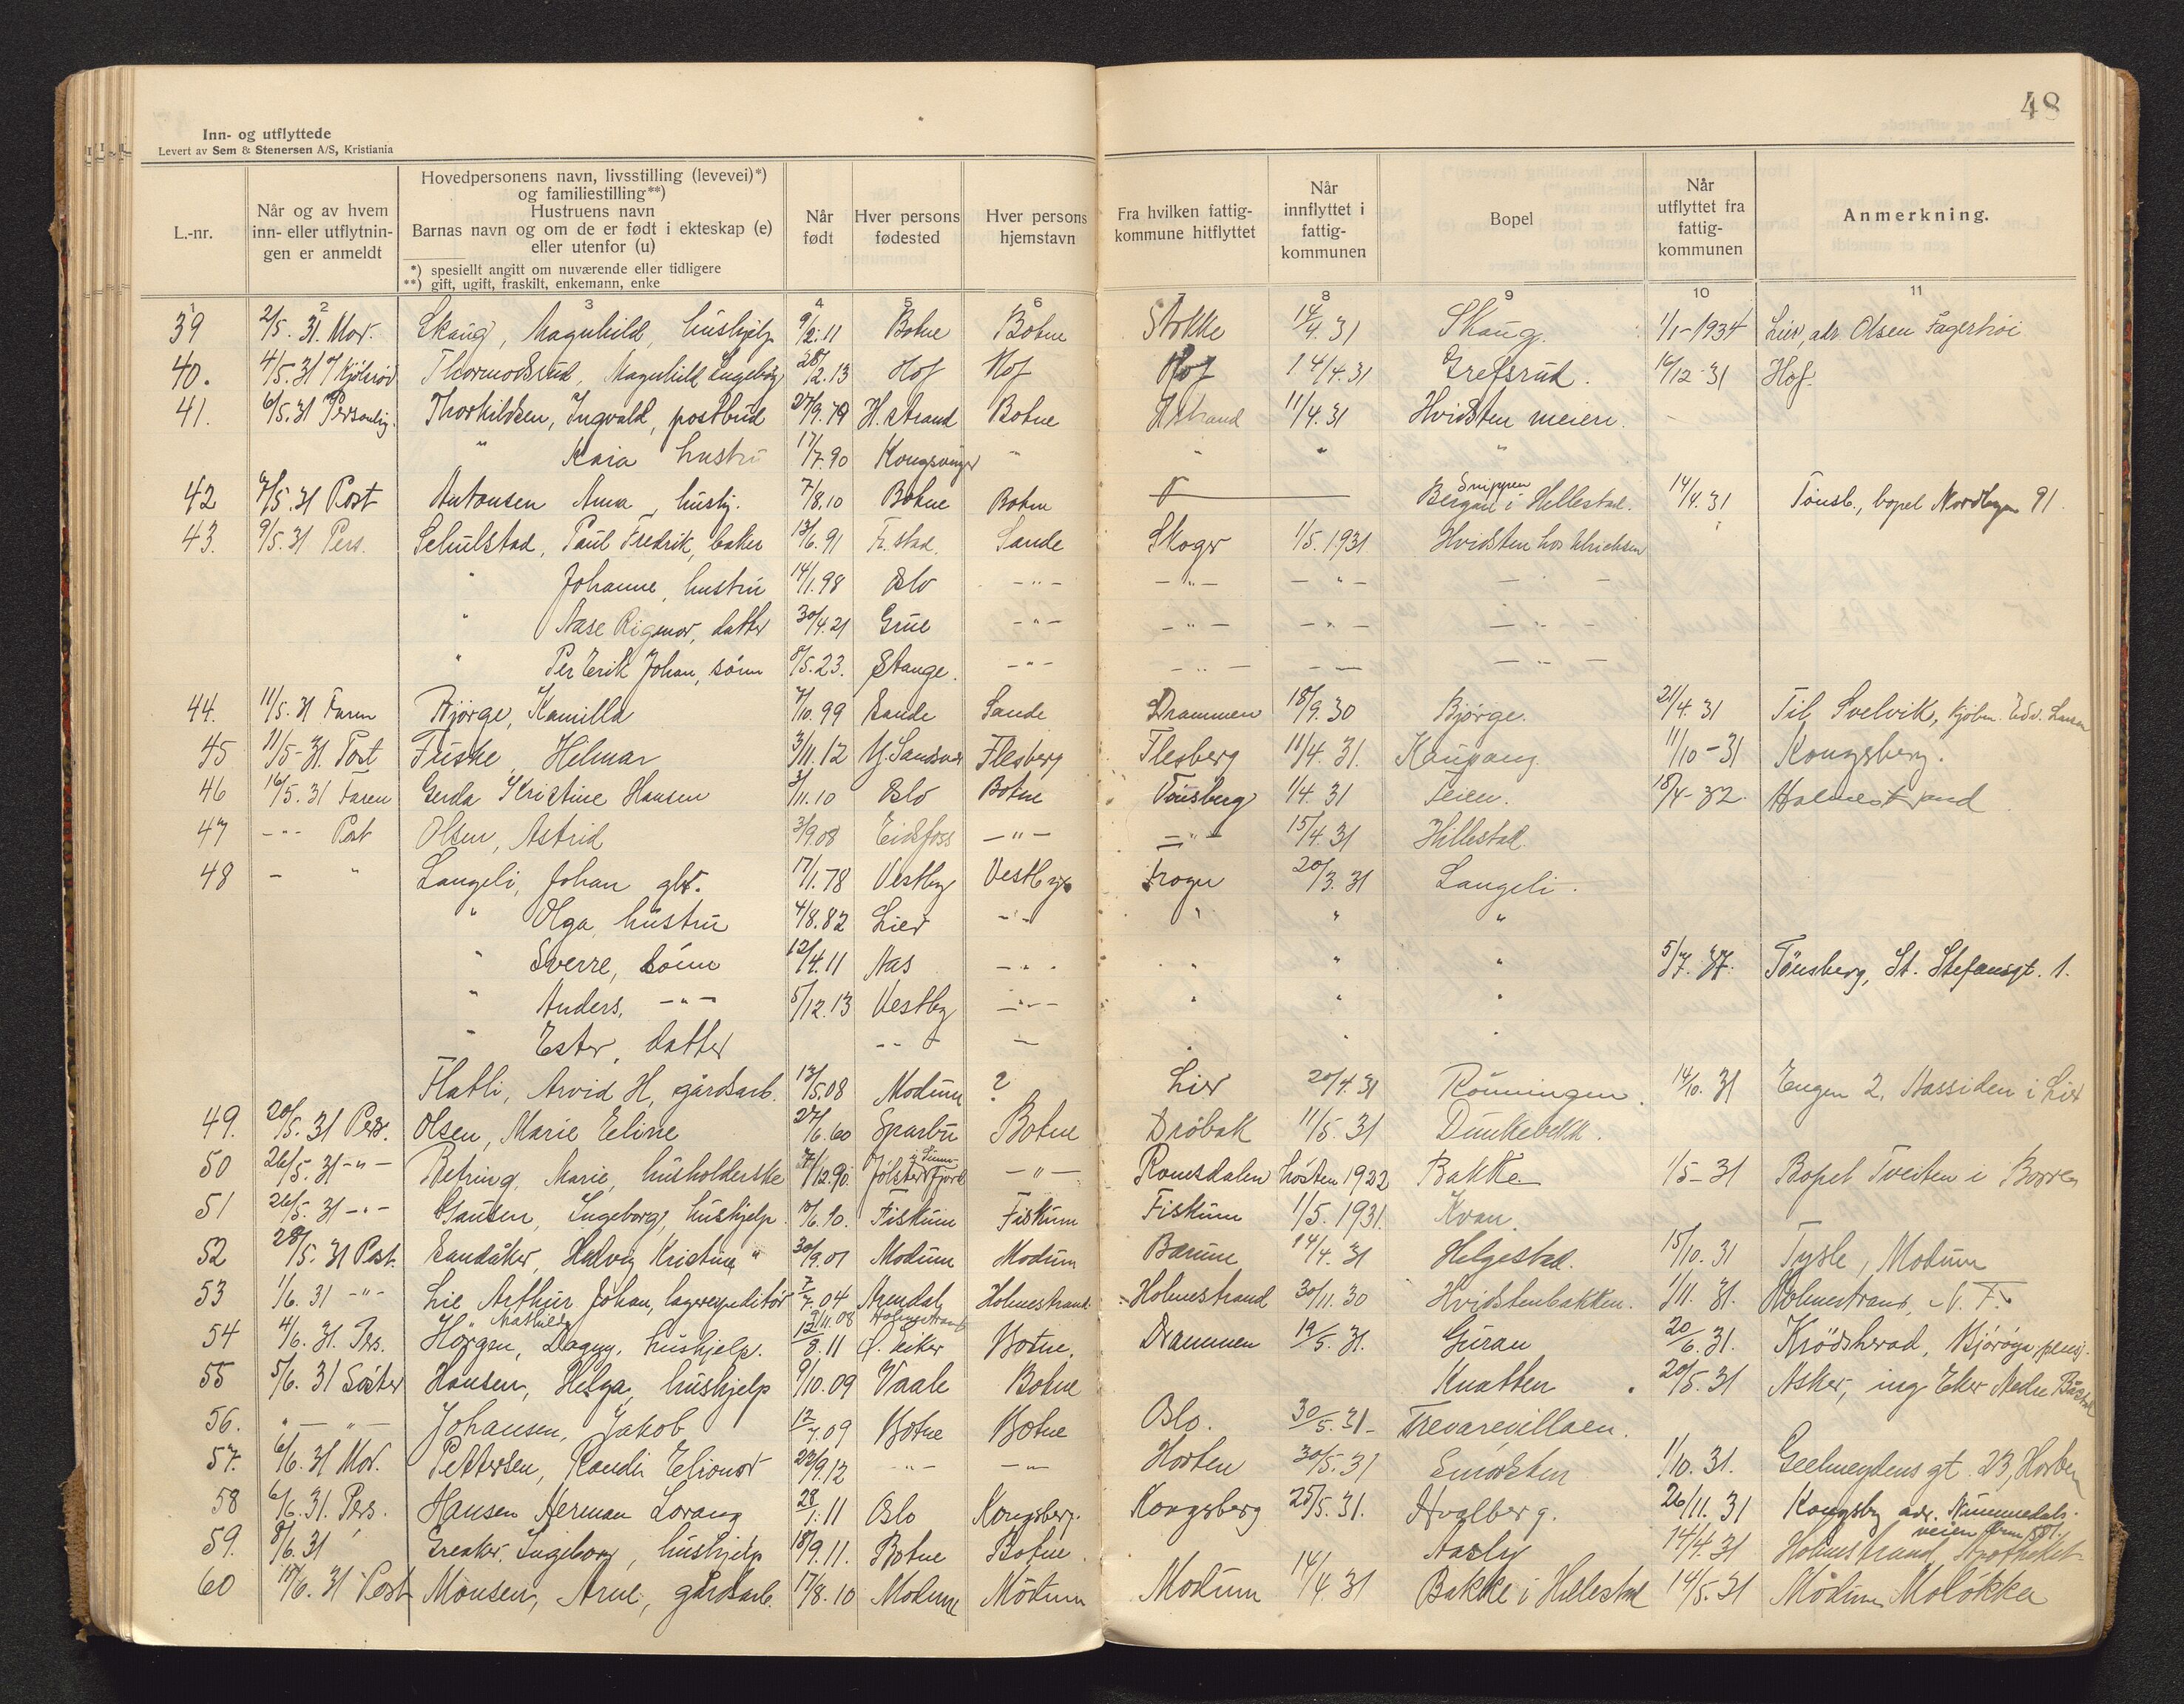 48
Inn- og utflyttede
Levert av Sem & Stenersen A/S, Kristiania
L.-nr.
Når og av hvem inn- eller utflytnin-gen er anmeldt
Hovedpersonens navn, livsstilling (levevei)*) og familiestilling**)
Hustruens navn
Barnas navn og om de er født i ekteskap (e) eller utenfor (u)
*) spesiellt angitt om nuværende eller tidligere
**) gift, ugift, fraskilt, enkemann, enke
Når født
Hver persons fødested
Hver persons hjemstavn
Fra hvilken fattig-kommune hitflyttet
Når innflyttet i fattig-kommunen
Bopel
Når utflyttet fra fattig-kommunen
Anmerkning.
1 2 3 4 5 6 7 8 9 10 11
39 2/5. 31. Mor. Skaug, Magnhild, hushjelp 9/2.11 Botne Botne Stokke 14/4.31 Skaug. 1/1-1934 Lier, adr Olsen Fagerhøi
40. 4/5.31 Thormodsrud, Magnhild Ingeborg 28/2.13 Hof Hof Hof 14/4.31 Grefsrud. 16/12-31 Hof.
41. 6/5.31 Personlig. Thorkildsen, Ingvald, postbud 27/9.79 H.strand Botne H.strand 11/4.31 Hvidsten meieri.
" Kaia hustru 17/7.90 Kongsvinger " " " "
42 7/5.31 Post Antonsen Anna, hushj. 7/8.10 Botne Botne Snippen Bergan i Hillestad. 14/4.31 Tønsb., bopel Nordbyen 91.
43. 9/5.31 Pers. Schulstad, Paul Fredrik, baker 13/6.91 F.stad. Sande Skoger 1/5.1931 Hvidsten hos Ulrichsen
" Johanne, hustru 14/1.98 Oslo -"- -"- -"- - -
" Aase Rigmor, datter 30/4.21 Grue -"- -"- -"- -"-
" Per Erik Johan, sønn 8/5.23. Stange. -"- -"- -- -"-
44. 11/5.31 Faren Bjørge, Kamilla 7/10.99 Sande Sande Drammen 18/9.30 Bjørge. 21/4.31 Til Svelvik, kjøbm. Edv. Larsen
45 11/5-31. Post Fuske, Hilmar 3/11.12 Y.Sandsvær Flesberg Flesberg 11/4.31. Kaupang 11/10-31 Kongsberg.
46 16/5.31 Faren Gerda Kristine Hansen 3/11.10 Oslo Botne Tønsberg 1/4.31 Teien. 18/4-32. Holmestrand
47 -"- Post Olsen, Astrid 3/9.08 Eidsfoss -"- -"- 15/4.31 Hillestad.
48 - " Langeli, Johan gbr. 17/1.78 Vestby Vestby Frogn 20/3.31 Langeli.
" Olga, hustru 4/8.82 Lier -"- " " "
" Sverre, sønn 12/4.11 Aas -"- " " " 5/7.37. Tønsberg, St. Stefansgt. 1.
" Anders, -"- 5/12.13 Vestby -"- " " "
" Ester, datter -"- -
Flatli, Arvid H, gårdsarb. 13/5.08 Modum ? Lier 20/4.31 Rønningen. 14/10.31 Engen 2, Aassiden i Lier
49. 20/5.31 Pers. Olsen, Marie Eline 27/6.60 Sparbu Botne Drøbak 11/5.31 Dunkebekk.
50 26/5.31 -"- Betring, Marie, husholderske 7/12.90. Jølster -"- Romsdalen høsten 1922 Bakke 1/5-31 Bopel Tveiten i Borre
51 26/5.31 -"- Ingeborg, hushjelp. 10/6.10. Fiskum Fiskum Fiskum 1/5.1931. Kvan.
52 28/5.31 Post. Sandåker, Halvig Kristine " 30/9.01 Modum Modum Bærum 14/4.31 Helgestad. 15/10.31 Tysle, Modum
53 1/6.31 -"- Lie Arthur Johan, lagerexpeditør 7/7.04 Arendal Holmestrand Holmestrand 30/11.30 Hvidstenbakken. 1/11.31. Holmestrand, N.F.
" Mathilde 9/11.08 Holmestrand
54 4/6.31. Pers. Horgen, Dagny, hushjelp. 12/8.11 Ø. Eiker Botne. Drammen 19/5.31. Guran 20/6.31. Krødsherad, Bjørøya pensj.
55 5/6.31 Søster Hansen, Helga, hushjelp 9/10.09 Vaale Botne Knatten 20/5.31 Asker, ing Eker Nedre
56. " - " - Johansen, Jakob 12/7.09 Botne Botne Oslo. 30/5.31- Trevarevillaen.
57. 6/6.31 Mor. Pettersen, Randi Elionor 23/9.12 -"- -"- Horten 30/5.31 Smørsten 1/10.31. Geelmeydens gt. 23, Horten
58 6/6.31. Pers. Hansen Herman Lorang 28/1.11 Oslo Kongsberg. Kongsberg 25/5.31. Hvalberg. 26/11.31 Kongsbg adr. Nummedals-veien
59. 8/6.31 Greaker, Ingeborg, hushjelp 18/9.11. Botne Botne. Aasly 14/4.31 Holmestrand Apotheket
60 17/6.31 Post Monsen, Arne, gårdsarb. 17/8.10 Modum Modum Modum 14/4.31 Bakke i Hillestad 14/5.31 Modum Moløkka